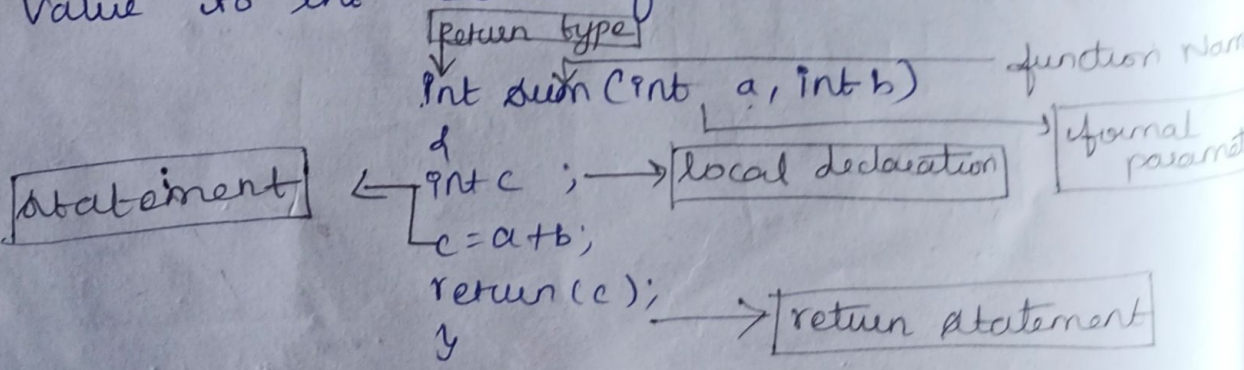 Value to the
Return type
int sum (int a, int b)
function Nam
formal
paramet
{
int c ;
local declaration
statement
c = a+b;
return (c);
return statement
}